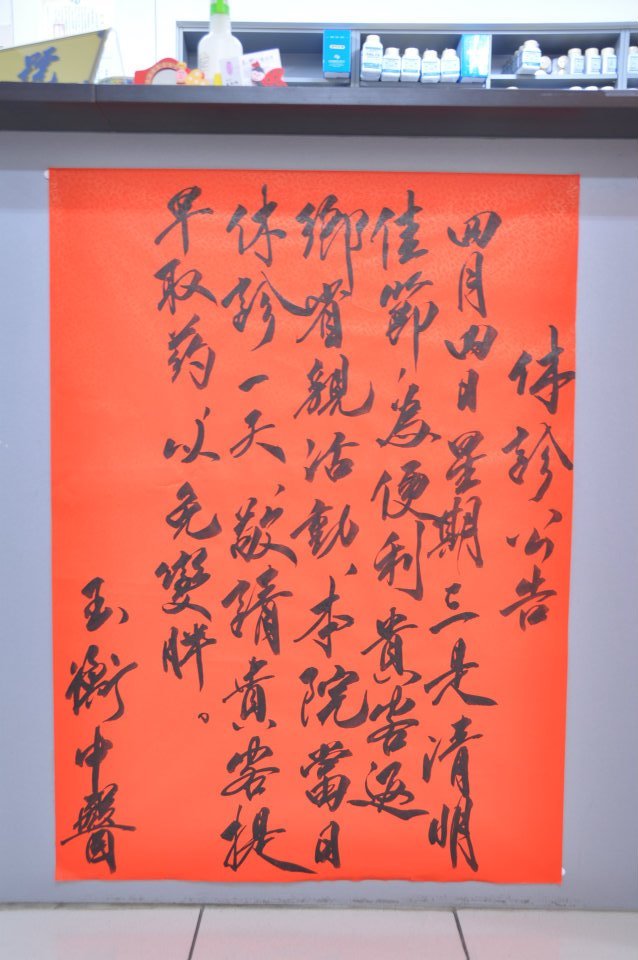 休診公告
四月四日星期三是清明
佳節，為便利貴客返
鄉省親活動、本院當日
休診一天，敬請貴客提
早取药，以免变胖。
玉衡中醫
號